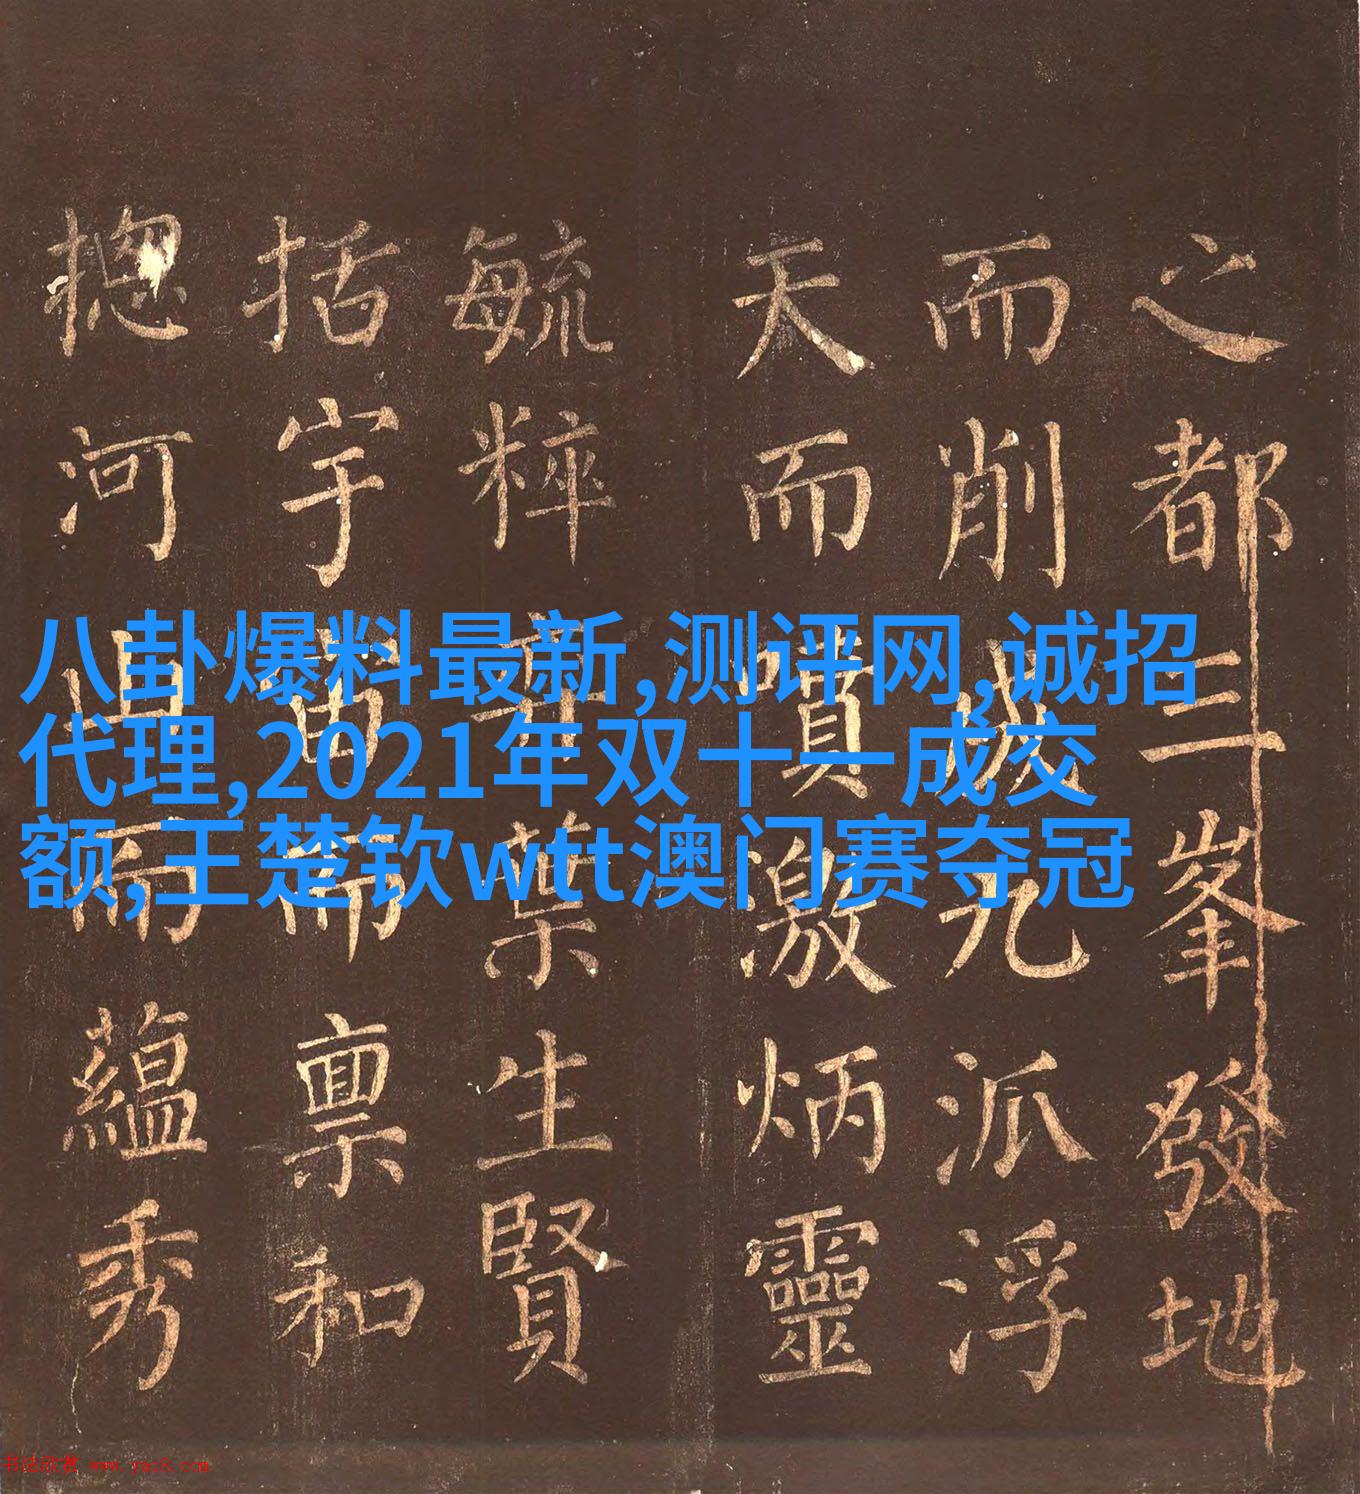 八卦爆料最新,测评网,诚招
代理,2021年双十一成交
额,王楚钦wtt澳门赛夺冠
之都三峯發地
而削成九派浮
天而噴激炳靈
毓粹葉生賢
括宇宙而禀和
揔河山而蘊秀
书法欣赏 www.yac8.com